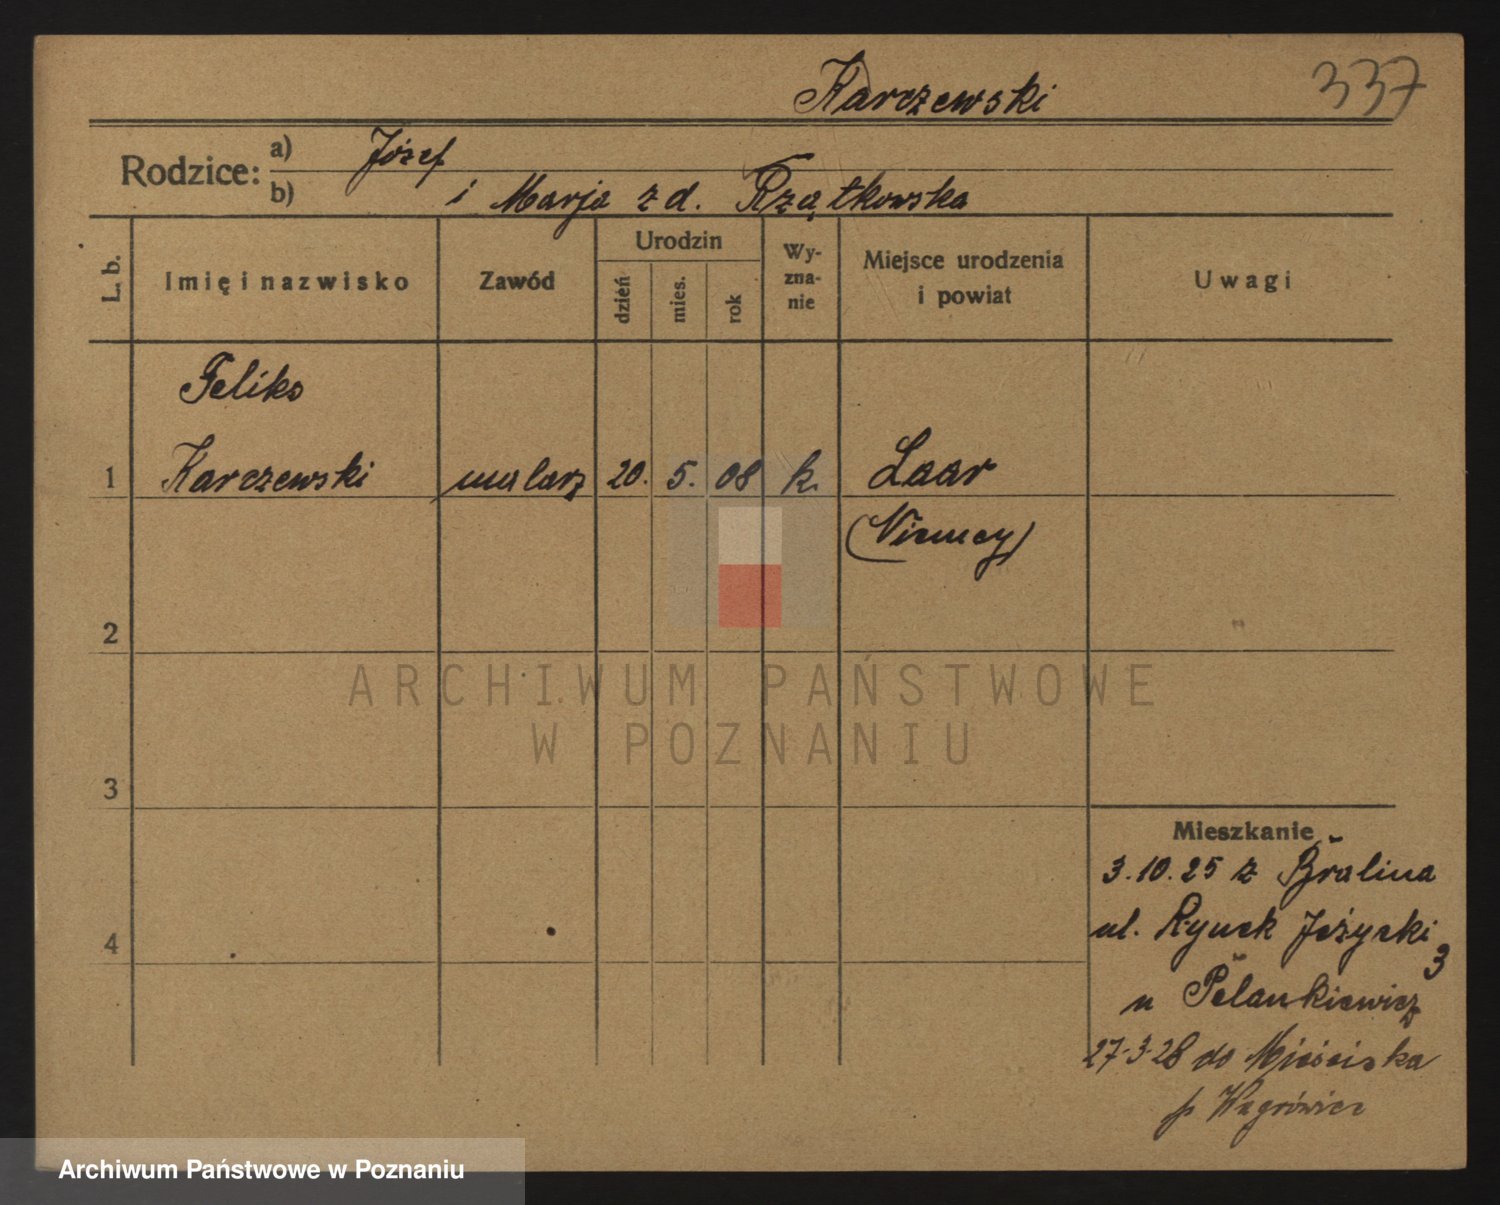 Karczewski 337
Rodzice: a) Józef
b) i Marja z d. Rzątkowska
L. b.
Imię i nazwisko
Zawód
Urodzin
dzień
mies.
rok
Wy-
zna-
nie
Miejsce urodzenia
i powiat
Uwagi
Feliks
1 Karczewski malarz 20. 5. 08 k. Laar
(Niemcy)
2
3
4
ARCHIWUM PAŃSTWOWE
W POZNANIU
Mieszkanie
3.10.25 z Bralina
ul. Rynek Jeżycki
3
u Pelankiewicz
27-3-28 do Mieściska
p Wągrówiec
Archiwum Państwowe w Poznaniu